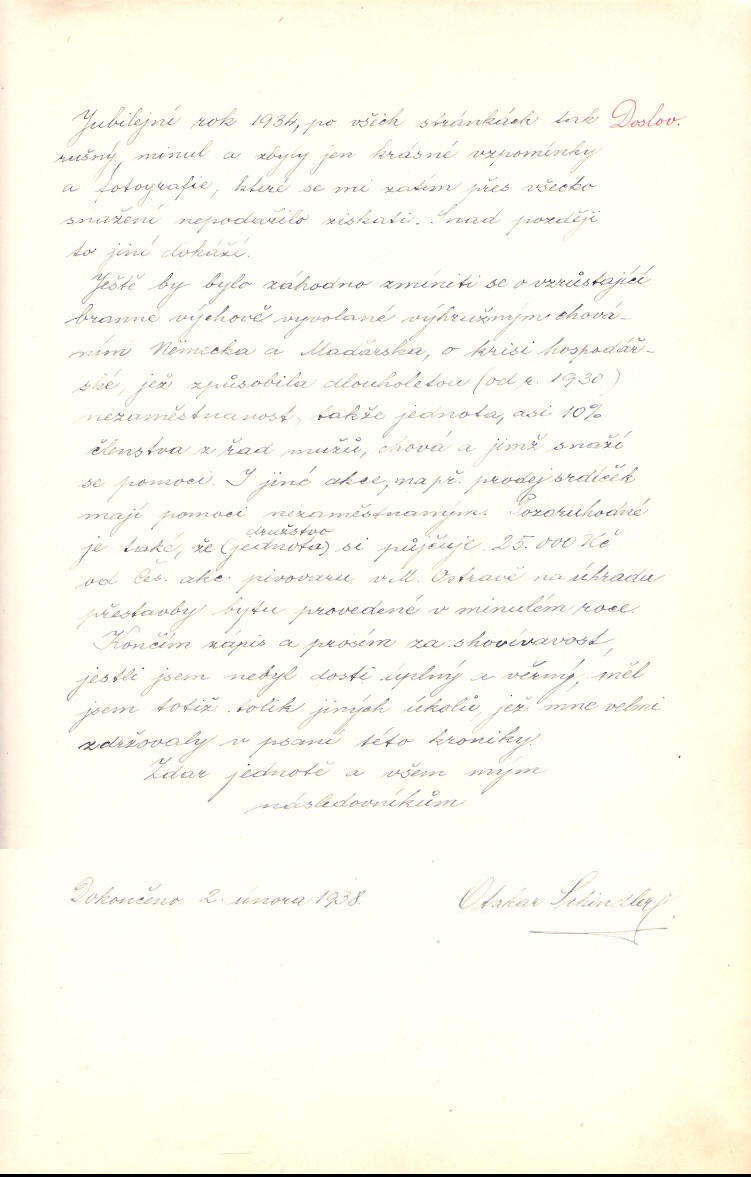 Doslov.
Jubilejní rok 1934, po všech stránkách tak
rušný, minul a zbyly jen krásné vzpomínky
a fotografie, které se mi zatím přes všecko
snažení nepodařilo získati. Snad později
to jiní dokáží.
Ještě by bylo záhodno zmíniti se o vzrůstající
branné výchově vyvolané výhružným chová-
ním Německa a Maďarska, o krisi hospodář-
ské, jež způsobila dlouholetou (od r. 1930)
nezaměstnanost, takže jednota, asi 10%
členstva z řad mužů, chová a jimž snaží
se pomoci. I jiné akce, např. prodej srdíček
mají pomoci nezaměstnaným. Pozoruhodné
družstvo
je také, že (jednota) si půjčuje 25.000 Kč
od Čes. akc. pivovaru v M. Ostravě na úhradu
přestavby bytu provedené v minulém roce.
Končím zápis a prosím za shovívavost,
jestli jsem nebyl dosti úplný a věrný, měl
jsem totiž tolik jiných úkolů, jež mne velmi
zdržovaly v psaní této kroniky.
Zdar jednotě a všem mým
následovníkům
Dokončeno 2. února 1938. Otakar Schindler